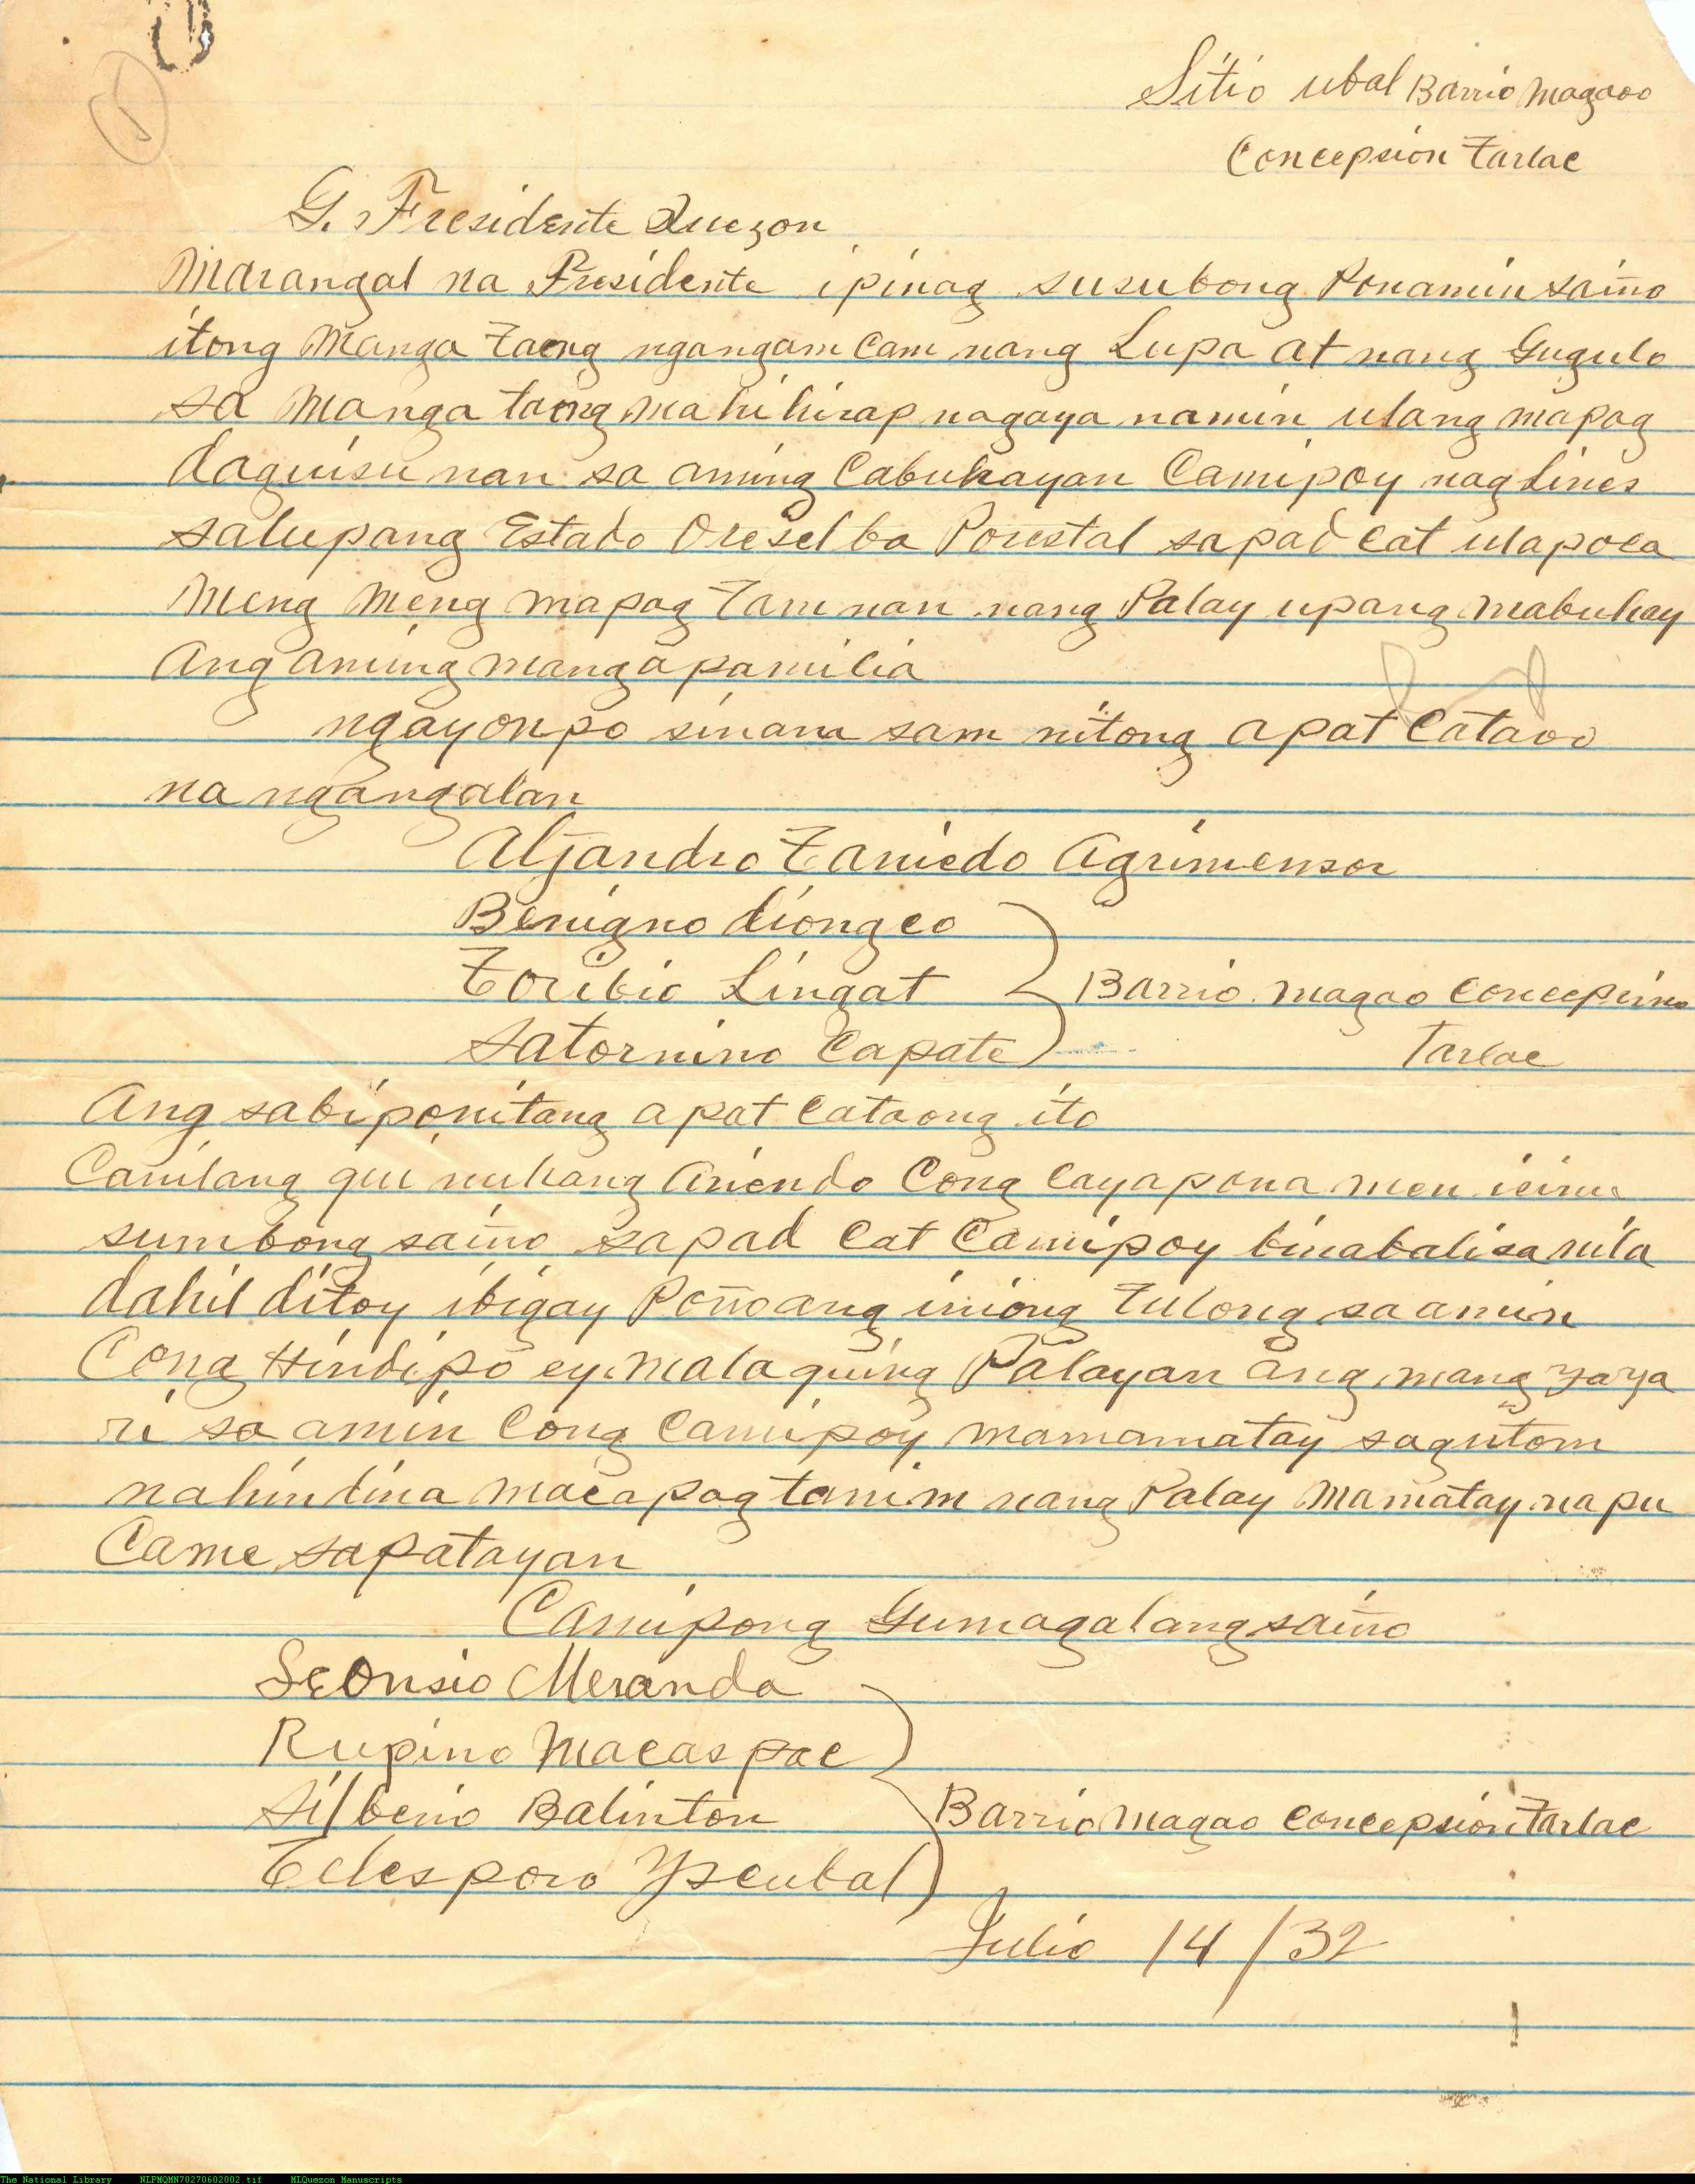 Sitio ubal Barrio Magaoo
Concepsion Tarlac
G. Presidente Quezon
Marangal na Presidente ipinag susubong Ponamin saiño
itong Manga Taong ngangam Cam nang Lupa at nang Gugulo
sa Manga taong mahihirap nagaya namin ulang mapag
daguisu nan sa aming Cabuhayan Camipoy nag Lines
salupang Estado Oreselba Porestal sapad cat ulapoca
Meng Meng mapag Tamnan nang Palay upang mabuhay
Ang aming manga pamilia
ngayonpo sinam sam nitong apat Cataoo
na ngangalan
Aljandro Taniedo Agrimensor
Benigno diongco
Toribio Lingat
Satornino Capate
Barrio Magao Concepcion
Tarlac
Ang sabi ponitang apat Cataong ito
Canilang qui nuhang Ariendo Cong Cayapona men
sumbong saiño sapad Cat Camipoy binabalisa nila
dahil ditoy ibigay Poñoang iniong Tulong sa amin
Cong Hindipo ey Mala quing Palayan ang mang yaya
ri sa amin Cong Camipoy mamamatay sagutom
nahindina macapag tanim nang Palay Mamatay na pu
Came sapatayan
Camipong Gumagalang saiño
Leonsio Meranda
Rupino Macaspac
Silberio Balinton
Telesporo Yscubal
Barrio Magao Concepsion Tarlac
Julio 14/32
The National Library NLPMQMN70270602002.tif MLQuezon Manuscripts